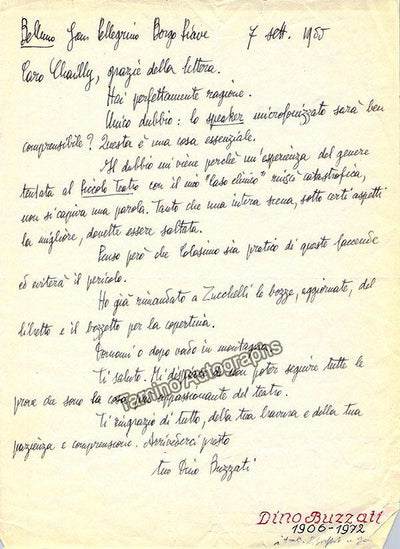 Belluno San Pellegrino Borgo Piave 7 sett. 1955
Caro Chailly, grazie della lettera.
Hai perfettamente ragione.
Unico dubbio: lo speaker microfonizzato sarà ben
comprensibile? Questa è una cosa essenziale.
Il dubbio mi viene perché un'esperienza del genere
tentata al Piccolo Teatro con il mio "Caso clinico" riuscì catastrofica,
non si capiva una parola. Tanto che una intera scena, sotto certi aspetti
la migliore, dovette essere saltata.
Penso però che Colasimo sia pratico di queste faccende
ed eviterà il pericolo.
Ho già rimandato a Zucchelli le bozze, aggiornate, del
libretto e il bozzetto per la copertina.
Domani o dopo vado in montagna.
Ti saluto. Mi dispiace di non poter seguire tutte le
prove che sono la cosa più appassionante del teatro.
Ti ringrazio di tutto, della tua bravura e della tua
pazienza e comprensione. Arrivederci presto
tuo Dino Buzzati
Tamino Autographs
Dino Buzzati
1906-1972